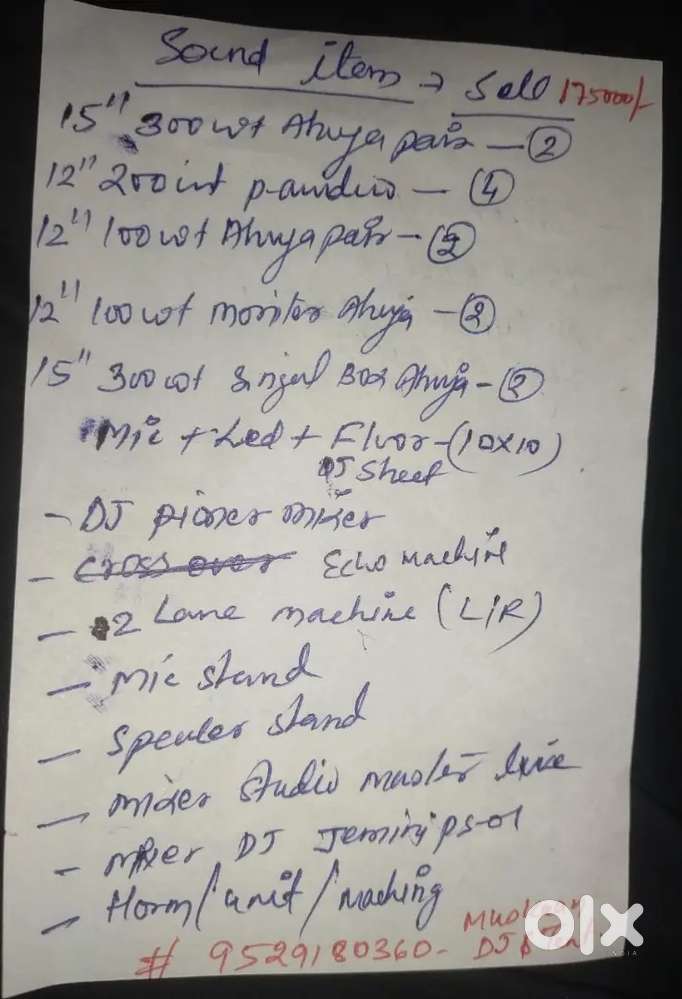 Sound item → Sell 175000/-
15" 300wt Ahuja pair — 2
12" 200wt p-audio — 4
12" 100wt Ahuja pair — 2
12" 100wt monitor Ahuja — 2
15" 300wt singal Box Ahuja — 2
Mic + Led + Fluor - (10x10)
DJ Sheet
- DJ pioner mixer
- Cross over Echo machine
- 2 Lane machine (L/R)
- Mic stand
- Speaker stand
- mixer Studio master
- mixer DJ Jeminy ps-01
- Horm / unit / maching
# 9529180360 -
DJ &
olx
INDIA